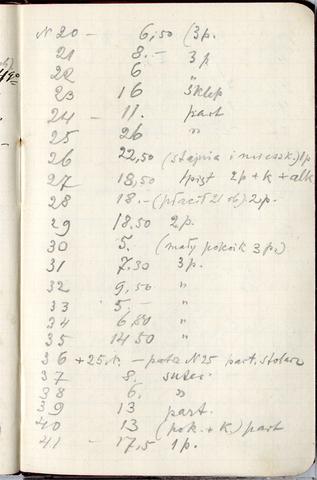 N 20 – 6,50 (3 p.
21 8.– 3 p
22 6 "
23 16 sklep
24 – 11. part
25 26 "
26 22,50 (stajnia i mieszk.) 1p
27 18,50 1 pięt 2p + k + alk
28 18.– (płacił 21 ob.) 2 p.
29 18.50 2 p.
30 5. (mały pokoik 3 p.)
31 7.30 3 p.
32 9,50 "
33 5.– "
34 6,80 "
35 14,50 "
36 + 25 N. – patrz N 25 part. stolarz
37 8. suter.
38 6. "
39 13 part.
40 13 (pok. + k.) part
41 – 17,5 1 p.